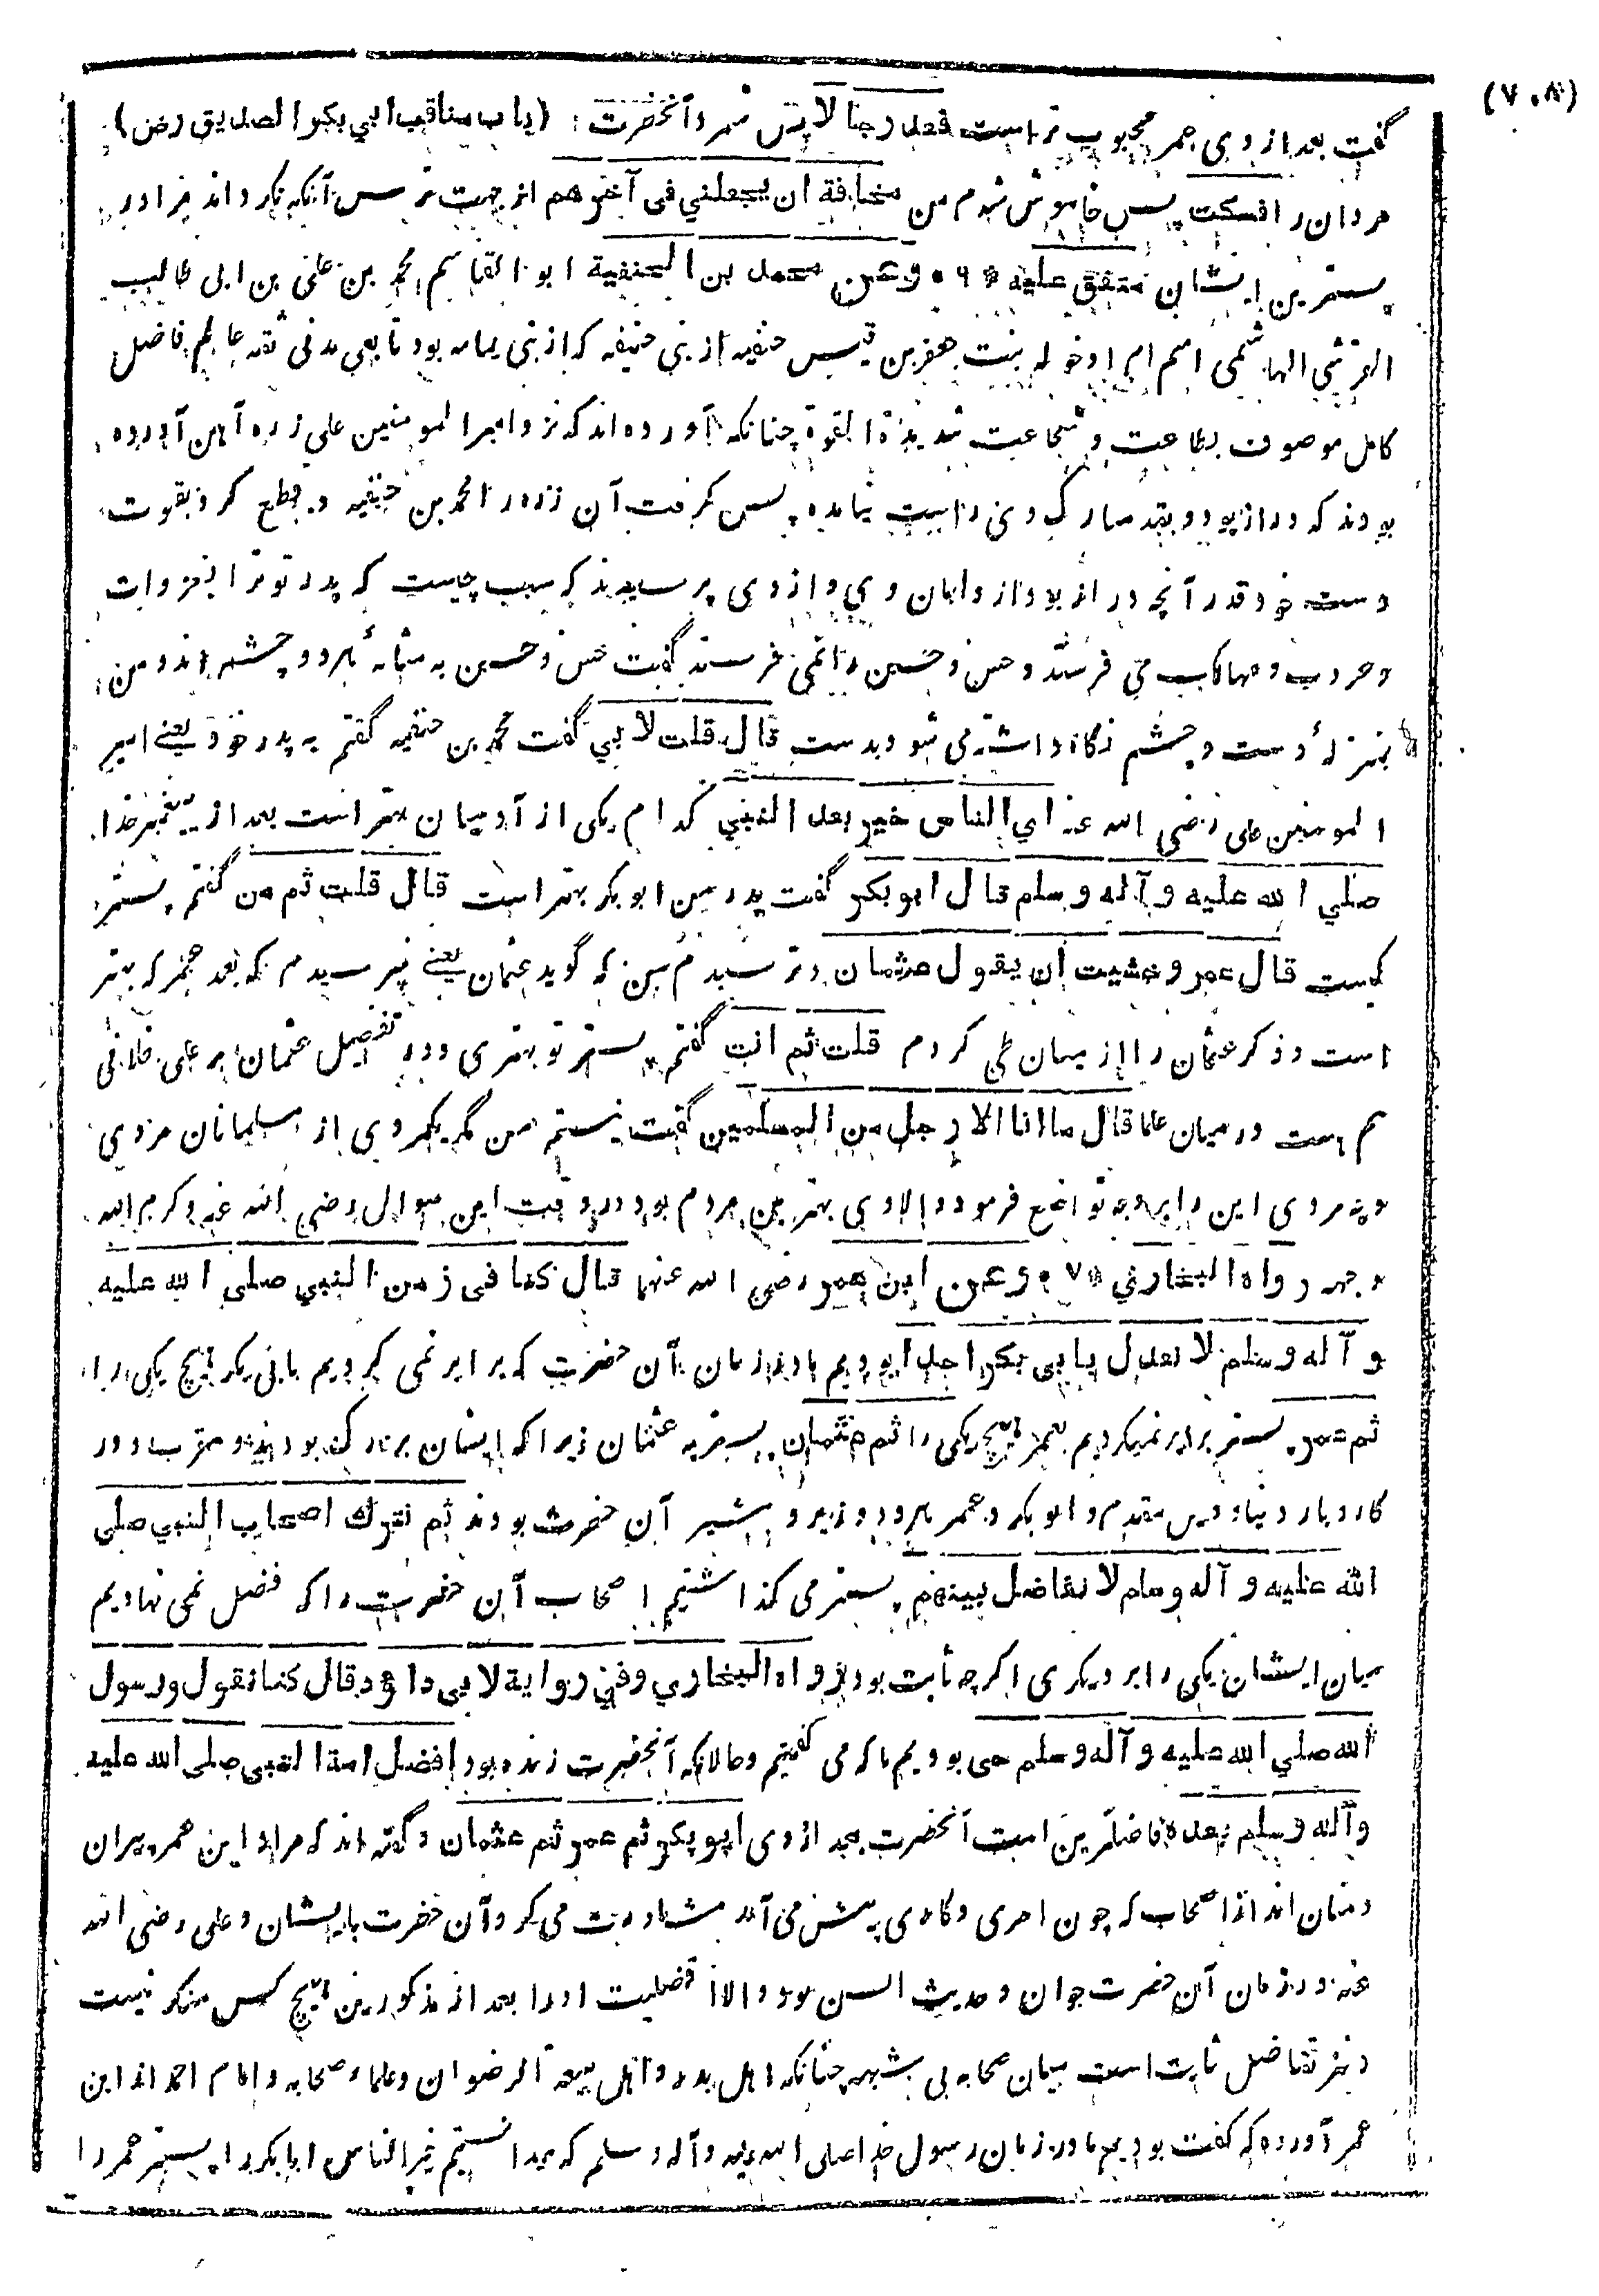 (۷۰۸)
گفت بعد از وی عمر محبوب تر است فعد رجالا پس شمرد آنحضرت (باب مناقب ابي بكر الصديق رض)
مردان را فسكت پس خاموش شدم من مخافة ان يجعلني فى آخرهم از جهت ترس آنکه نگرداند مرا در
پسترین ایشان متفق عليه ۶ * وعن محمد بن الحنفية ابو القاسم محمد بن علی بن ابی طالب
القرشی الهاشمی اسم ام او خوله بنت جعفر بن قیس حنفیه از بنی حنیفه که از بنی یمامه بود تابعی مدنی ثقه عالم فاضل
کامل موصوف بطاعت و شجاعت شدیدة القوة چنانکه آورده اند که نزد امیر المومنین علی زره آهن آورده
بودند که دراز بود و بقد مبارک وی راست نیامده پس گرفت آن زره را محمد بن حنفیه و قطع کرد بقوت
دست خود قدر آنچه دراز بود از دامان وی و از وی پرسیدند که سبب چیست که پدر تو ترا بغزوات
و حروب و مهالک می فرستد و حسن و حسین را نمی فرستد گفت حسن و حسین به مثابهٔ هر دو چشم اند و من
بمنزلهٔ دست و چشم نگاه داشته می شود بدست قال قلت لابي گفت محمد بن حنفیه گفتم به پدر خود یعنے امیر
المومنین علی رضی الله عنه اي الناس خير بعد النبي کدام یکی از آدمیان بهتر است بعد از پیغمبر خدا
صلي الله عليه و آله و سلم قال ابو بكر گفت پدر من ابو بکر بهتر است قال قلت ثم من گفتم پستر
کیست قال عمر وخشيت ان يقول عثمان و ترسیدم من که گوید عثمان یعنے نپرسیدم که بعد عمر که بهتر
است و ذکر عثمان را از میان طی کردم قلت ثم انت گفتم پستر تو بهتری و در تفضیل عثمان بر علی خلافی
هم هست در میان علما قال ما انا الا رجل من المسلمين گفت نیستم من مگر یکمردی از مسلمانان مردی
و نه مردی این را بر وجه تواضع فرمود و الا وی بهترین مردم بود در وقت این سوال رضی الله عنه و کرم الله
وجهه رواه البخاري ۷ * وعن ابن عمر رضی الله عنهما قال كنا فى زمن النبي صلى الله عليه
و آله وسلم لا نعدل بابى بكر احدا بودیم ما در زمان آن حضرت که برابر نمی کردیم بابی بکر هیچ یکی را
ثم عمر پستر برابر نمیکردیم بعمر هیچ یکی را ثم عثمان پستر به عثمان زیرا که ایشان بزرگ بودند و مقرب و در
کار و بار دنیا و دین مقدم و ابو بکر و عمر هر دو وزیر و مشیر آن حضرت بودند ثم نترك اصحاب النبي صلى
الله عليه و آله وسلم لا نفاضل بينهم پستر می گذاشتیم اصحاب آن حضرت را که فضل نمی نهادیم
میان ایشان یکی را بر دیگری اگرچه ثابت بود رواه البخاري وفي رواية لابى داؤد قال كنا نقول ورسول
الله صلي الله عليه و آله وسلم حى بودیم ما که می گفتیم و حالانکه آنحضرت زنده بود افضل امة النبى صلى الله عليه
وآله وسلم بعده فاضلترین امت آنحضرت بعد از وی ابو بكر ثم عمر ثم عثمان و گفته اند که مراد ابن عمر پیران
و مسنان اند از اصحاب که چون امری و کاری پیش می آمد مشاورت می کرد آن حضرت بایشان و علی رضی الله
عنه در زمان آن حضرت جوان و حدیث السن بود و الا افضلیت او را بعد از مذکورین هیچ کس منکر نیست
و نیز تفاضل ثابت است میان صحابه بی شبهه چنانکه اهل بدر و اهل بیعة الرضوان و علماء صحابه و امام احمد از ابن
عمر آورده که گفت بودیم ما در زمان رسول خدا صلی الله علیه وآله وسلم که میدانستیم خیر الناس ابا بکر را پستر عمر را